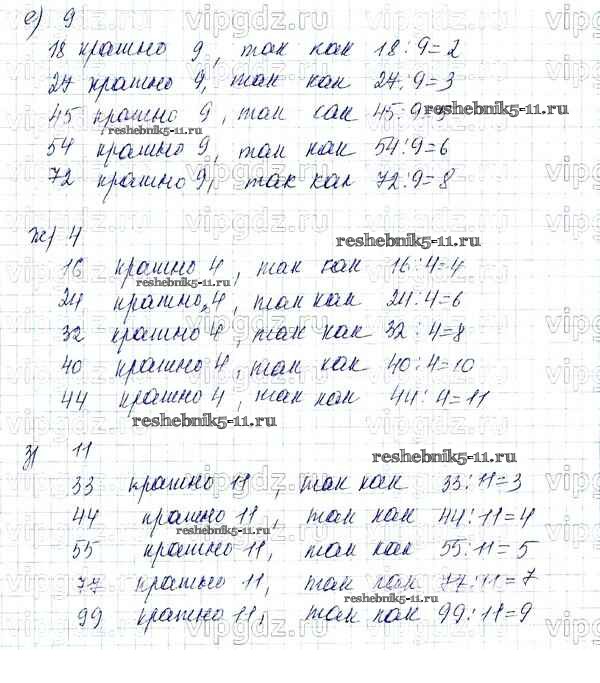 е) 9
18 кратно 9, так как 18:9=2
27 кратно 9, так как 27:9=3
45 кратно 9, так как 45:9=5
reshebnik5-11.ru
reshebnik5-11.ru
54 кратно 9, так как 54:9=6
72 кратно 9, так как 72:9=8
ж) 4
reshebnik5-11.ru
16 кратно 4, так как 16:4=4
reshebnik5-11.ru
24 кратно 4, так как 24:4=6
32 кратно 4, так как 32:4=8
40 кратно 4, так как 40:4=10
44 кратно 4, так как 44:4=11
reshebnik5-11.ru
з) 11
reshebnik5-11.ru
33 кратно 11, так как 33:11=3
44 кратно 11, так как 44:11=4
reshebnik5-11.ru
55 кратно 11, так как 55:11=5
77 кратно 11, так как 77:11=7
reshebnik5-11.ru
99 кратно 11, так как 99:11=9
vipgdz.ru